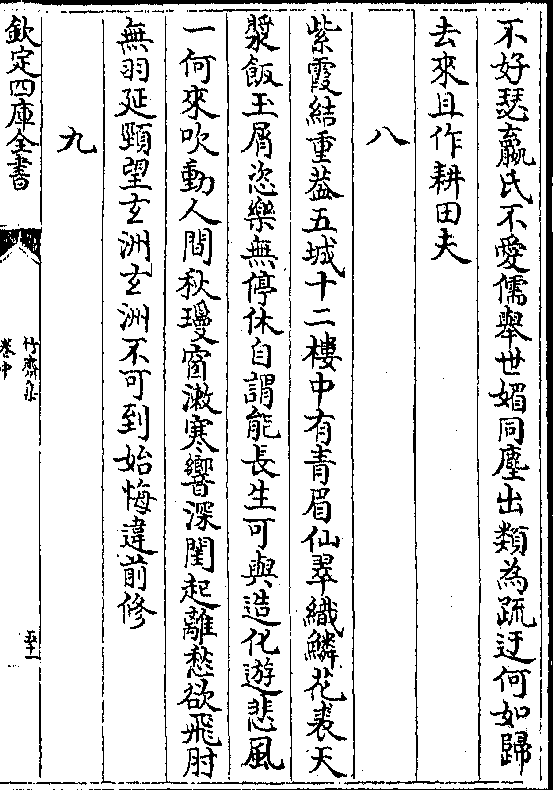 不好瑟嬴氏不愛儒舉世媚同塵出類為疏迂何如歸
去來且作耕田夫
八
紫霞結重葢五城十二樓中有青眉仙翠織鱗花裘天
漿飯玉屑恣樂無停休自謂能長生可與造化遊悲風
一何來吹動人間秋璦窗漱寒響深閨起離愁欲飛肘
無羽延頸望玄洲玄洲不可到始悔違前修
九
欽定四庫全書
竹齋集
卷中
五十一